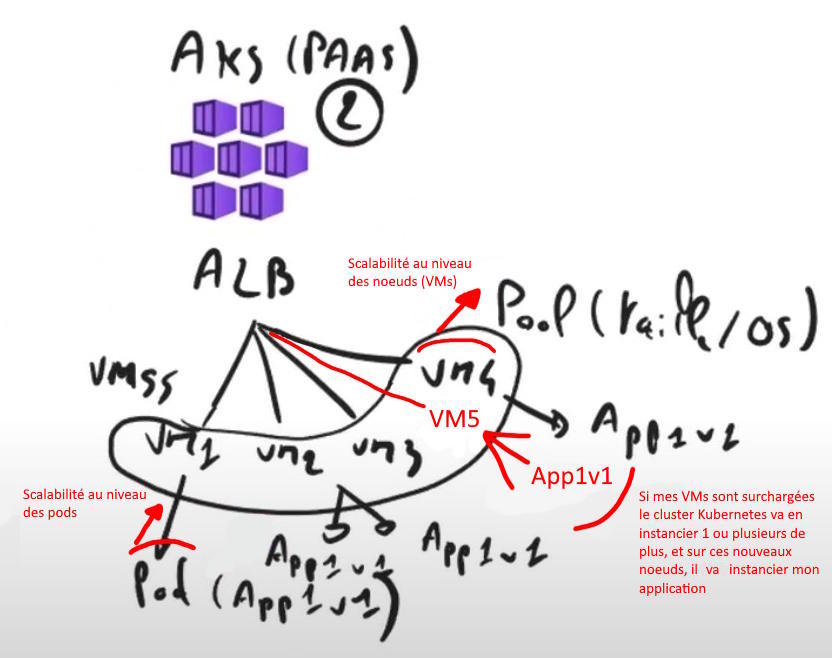 AKS (PAAS)
2
ALB
Scalabilité au niveau
des noeuds (VMs)
Pool (Taille/OS)
VMSS
VM4
VM5
App1v1
VM1
VM2
VM3
App1v1
Scalabilité au niveau
des pods
Si mes VMs sont surchargées
le cluster Kubernetes va en
instancier 1 ou plusieurs de
plus, et sur ces nouveaux
noeuds, il va instancier mon
application
App1v1
App1v1
Pod (App1v1)